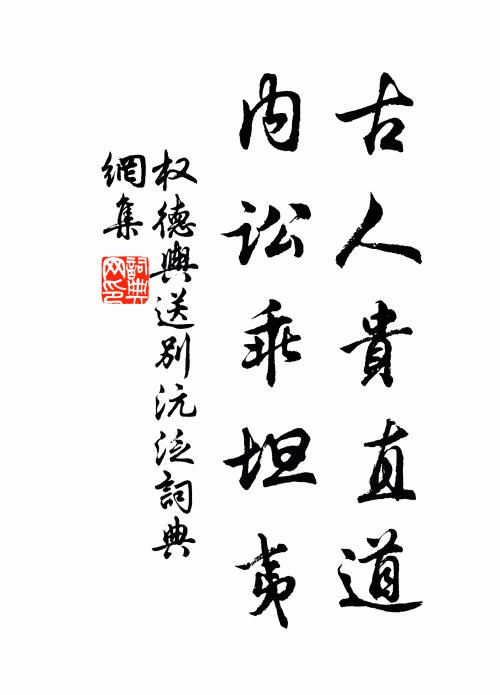 古人貴直道
内訟乖坦夷
权德輿送別沅泛詞典
網集
詞典
网印